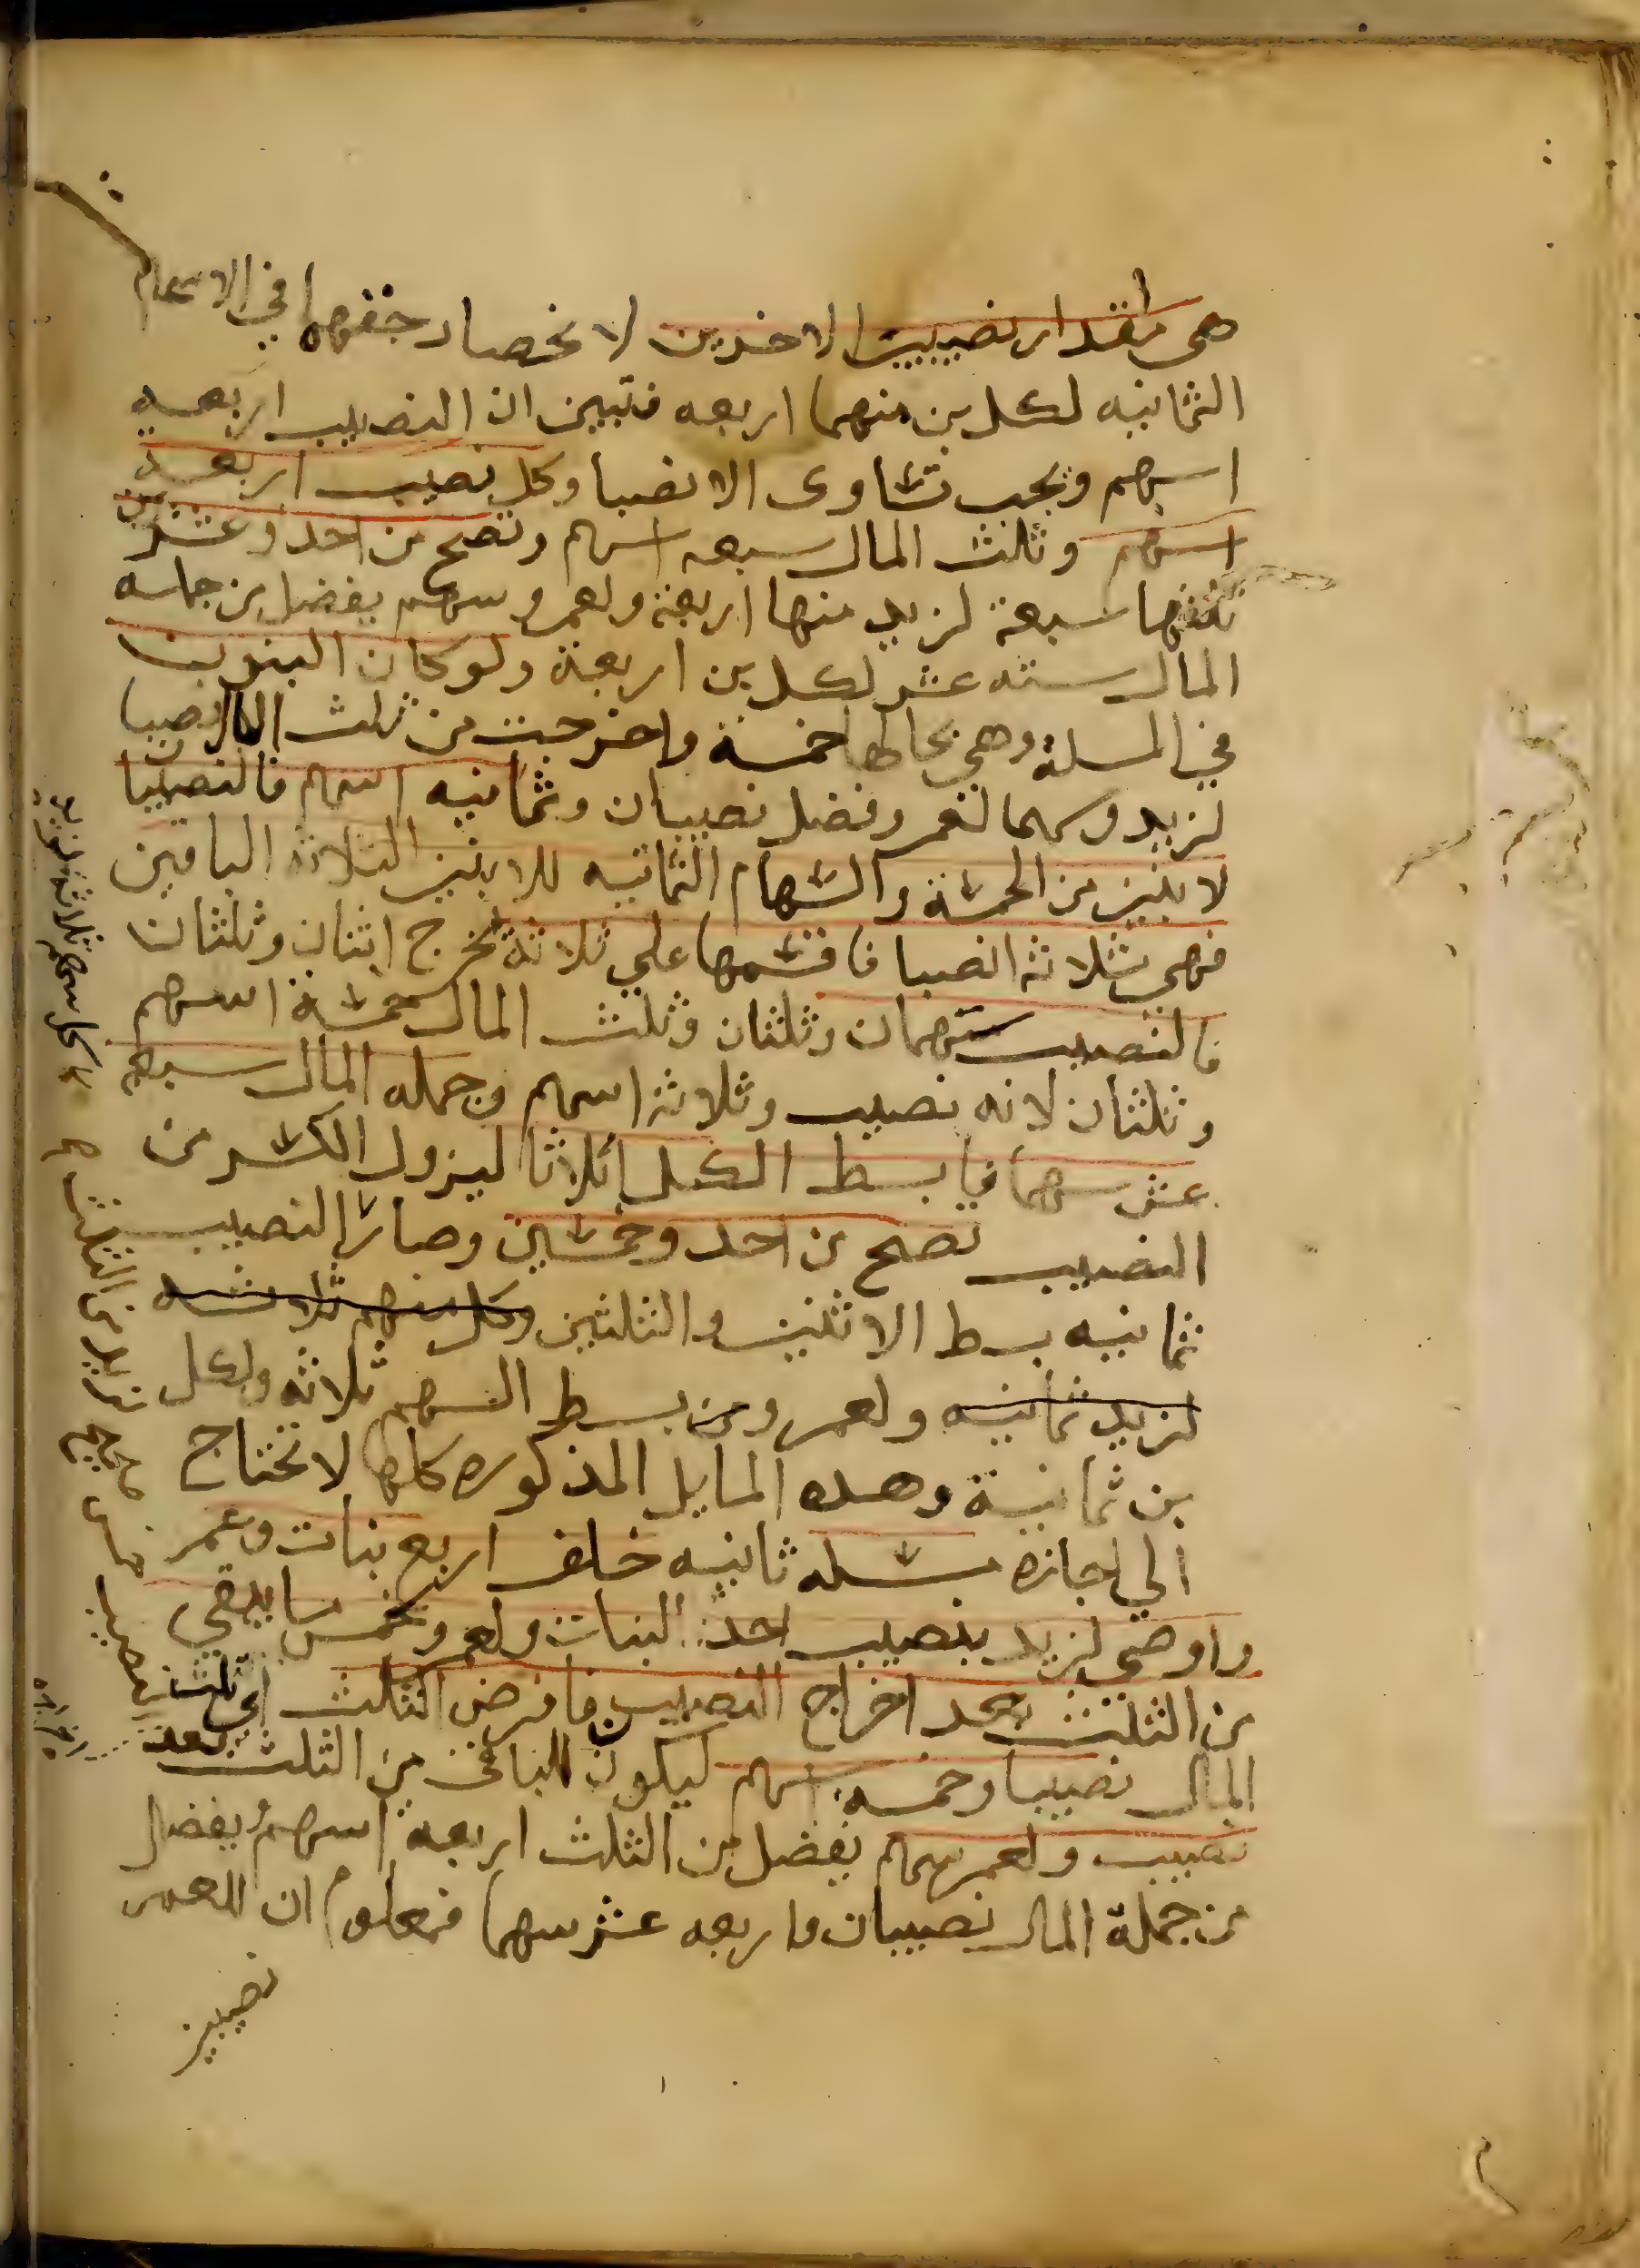 هي مقدار نصيبين الاخرين لانحصار حقهما في الاسهام
الثمانيه لكل بن منهما اربعه فتبين ان النصيب اربعه
اسهم ويجب تساوى الانصبا وكل نصيب اربعة
اسهم وثلث المال سبعه اسهم وتصح من احد وعشرين
ثلثها سبعة لزيد منها اربعة ولعمرو سهم يفضل من جمله
المال سته عشر لكل بن اربعة ولو كان البنون
في المسلة وهي بحالها خمسة واخرجت من ثلث المال نصيبا
لزيد وسهما لعمرو فضل نصيبان وثمانيه اسهم فالنصيبان
لابنين من الخمسة والسهام الثمانيه للابنين الثلاثة الباقين
فهي ثلاثه انصبا فاقسمها على ثلاثة تخرج اثنان وثلثان
فالنصيب سهمان وثلثان وثلث المال خمسة اسهم
وثلثان لانه نصيب وثلاثة اسهم وجمله المال سبعه
عشر سهما فابسط الكل اثلاثا ليزول الكسر من
النصيب تصح من احد وخمسين وصار النصيب
ثمانيه بسط الاثنين والثلثين وكل سهم ثلاثه
لزيد ثمانيه ولعمرو من بسط السهم ثلاثه ولكل
بن ثمانية وهذه المسايل المذكوره كلها لا تحتاج
الي اجازه مسله ثانيه خلف اربع بنات وعم
واوصى لزيد بنصيب احد البنات ولعمرو بخمس ما يبقى
من الثلث بعد اخراج النصيب فافرض الثلث اي ثلث
المال نصيبا وخمسه اسهم ليكون الباقي من الثلث بعد
نصيب ولعمرو سهم يفضل من الثلث اربعه اسهم يفضل
من جملة المال نصيبان واربعه عشر سهما فمعلوم ان للعم
نصيبين